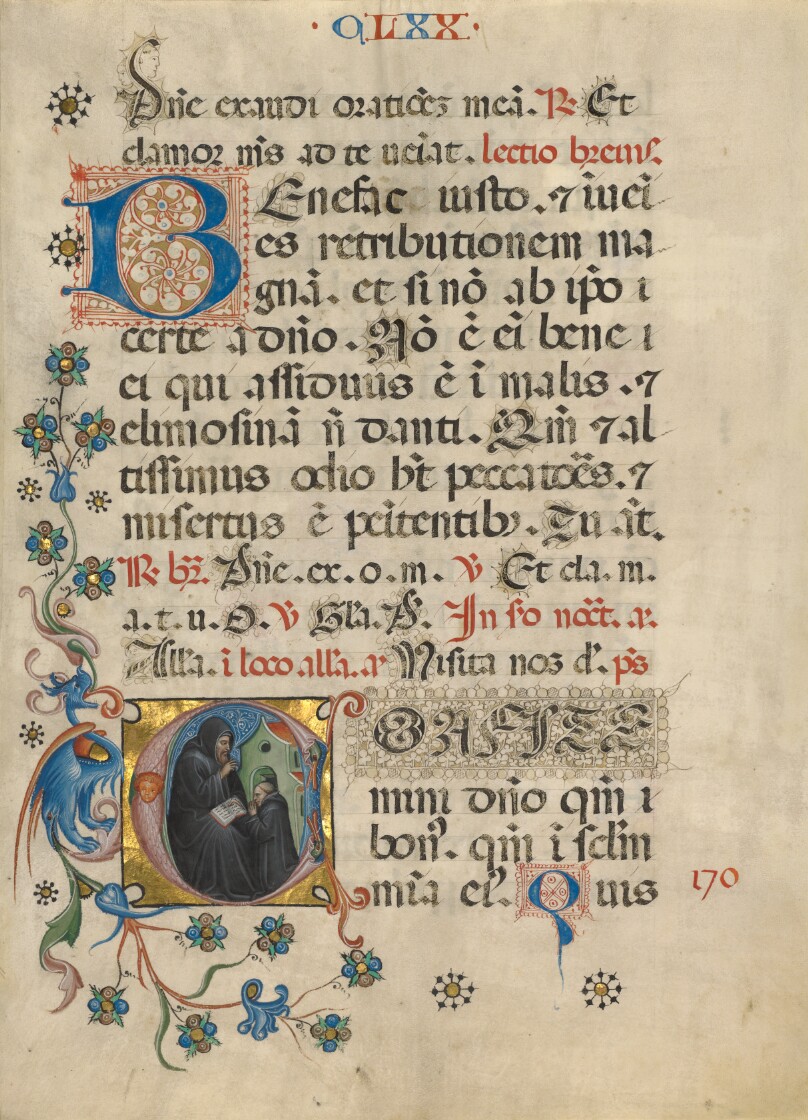 · CLXX ·
Dñe exaudi oratiōēȝ meā. ℟ Et
clamor m̄s ad te ueīat. lectio breuis.
BEnefac iusto. ⁊ īueī
es retributionem ma
gnā. et si nō ab ip̄o i
certe a dño. Nō ē eī bene i
ei qui assiduus ē ī malis. ⁊
elimosinā ñ danti. Qm̄ ⁊ al
tissimus odio h̄t peccatōēs. ⁊
misertus ē peītentibȝ. Tu āt.
℟ br̄. Dñe. ex. o. m. ℣ Et cla. m.
a. t. u. D. ℣ Gla. P̄. In s̄o noct̄. a.
Alla. ī loco all̄a. a Misita nos d̄. p̄s
COnFITE
mini dño qm̄ i
bon⁹. qm̄ ī sclm̄
mīa ei⁹. Quis
170